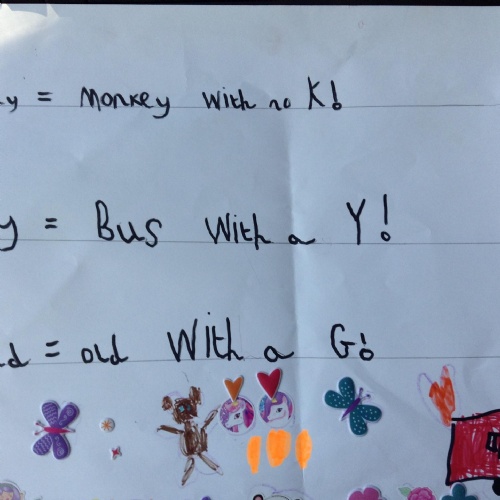 y = Monkey with no K!
y = Bus with a Y!
ld = old With a G!